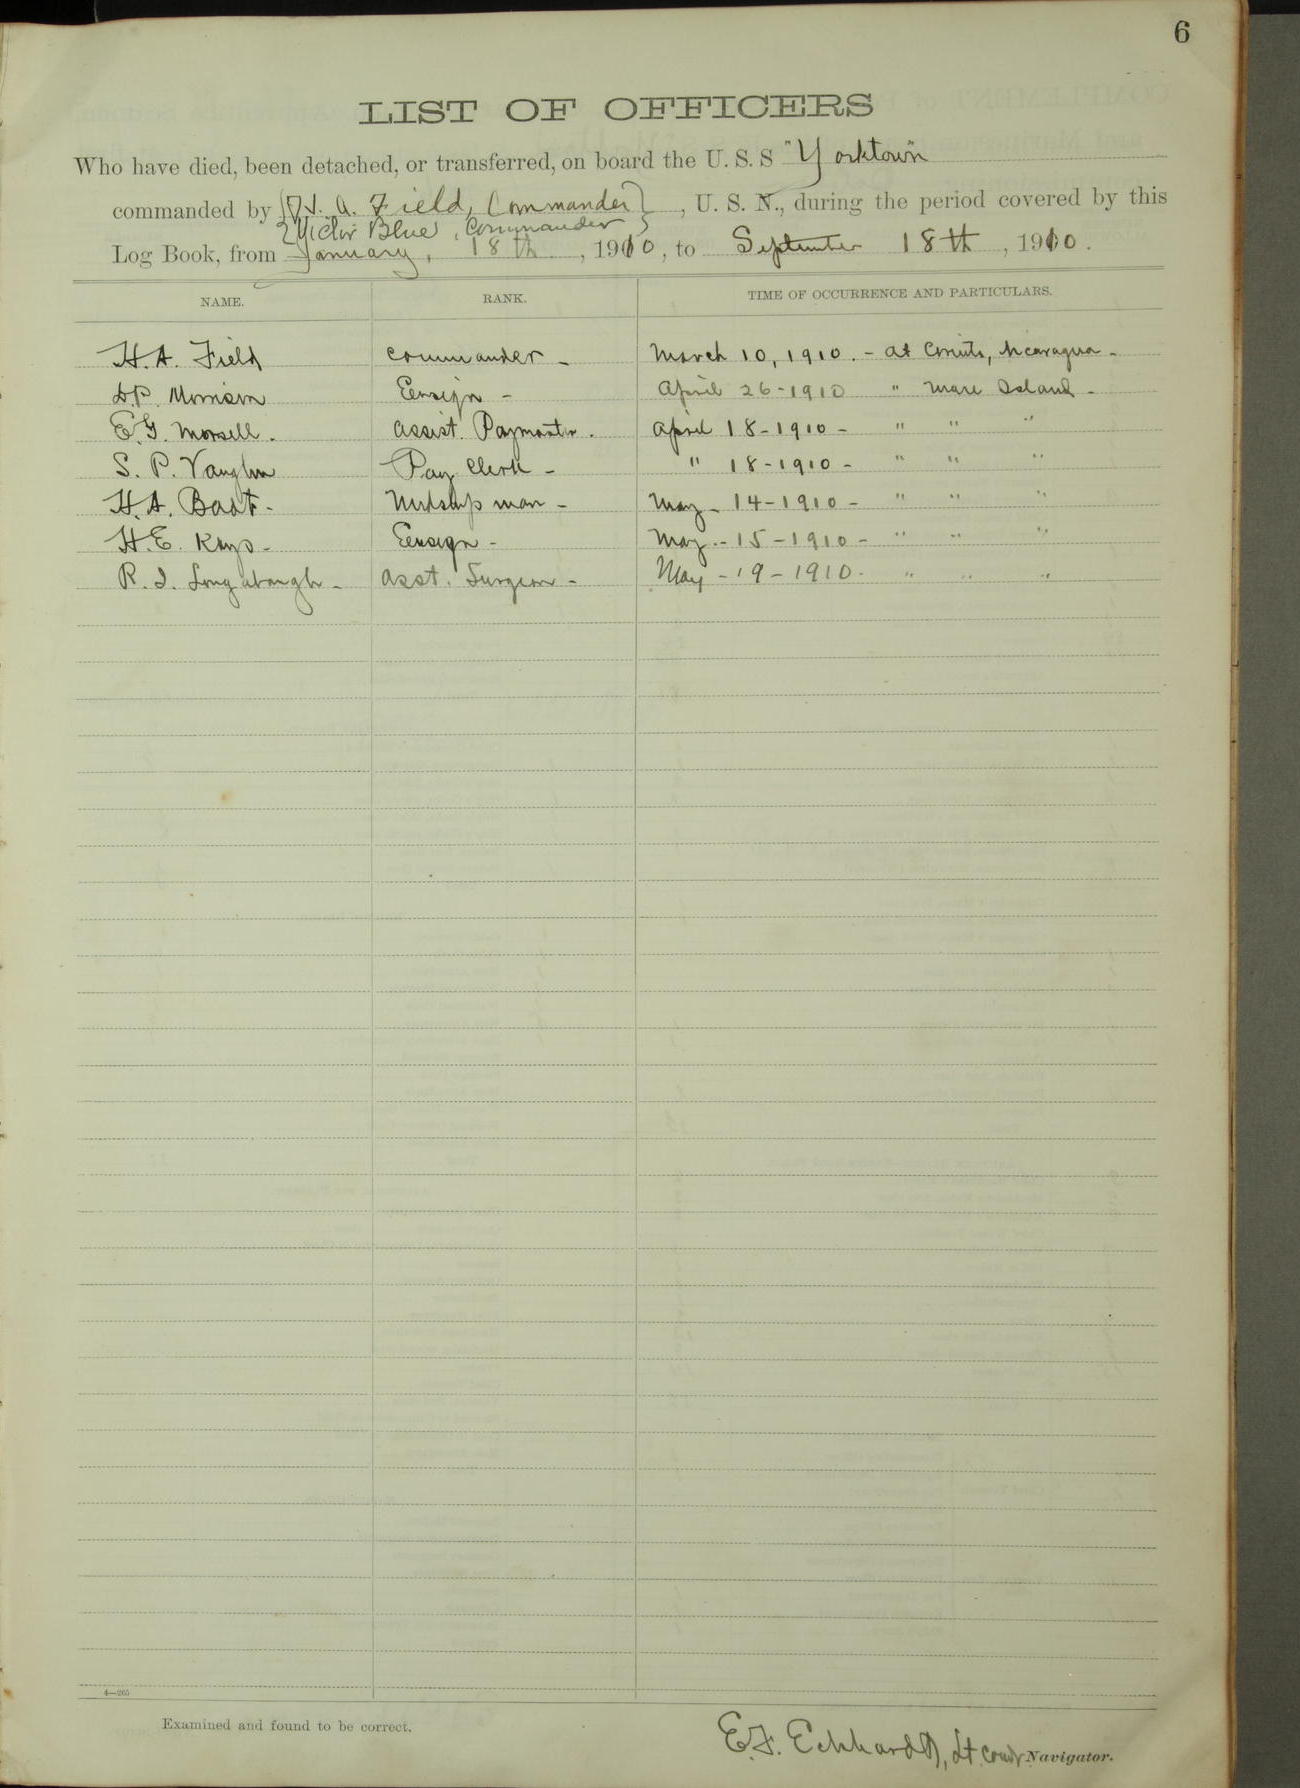 6
LIST OF OFFICERS
Who have died, been detached, or transferred, on board the U. S. S "Yorktown"
commanded by H. A. Field, Commander, U. S. N., during the period covered by this
Victor Blue, Commander
Log Book, from January, 18th, 1910, to September 18th, 1910.
NAME. RANK. TIME OF OCCURRENCE AND PARTICULARS.
H. A. Field Commander - March 10, 1910. - at Corinto, Nicaragua -
D.P. Morrison Ensign - April 26-1910 " Mare Island -
E.G. Morsell. Assist. Paymaster. April 18-1910 - " " "
S. P. Vaughn Pay Clerk - " 18-1910 - " " "
H. A. Badt - Midshipman - May - 14-1910 - " " "
H. E. Keys - Ensign - May. - 15-1910 - " " "
R. I. Longabaugh - Asst. Surgeon - May - 19-1910. " " "
4—265
Examined and found to be correct.
E. F. Eckhardt, Lt. Comdr Navigator.